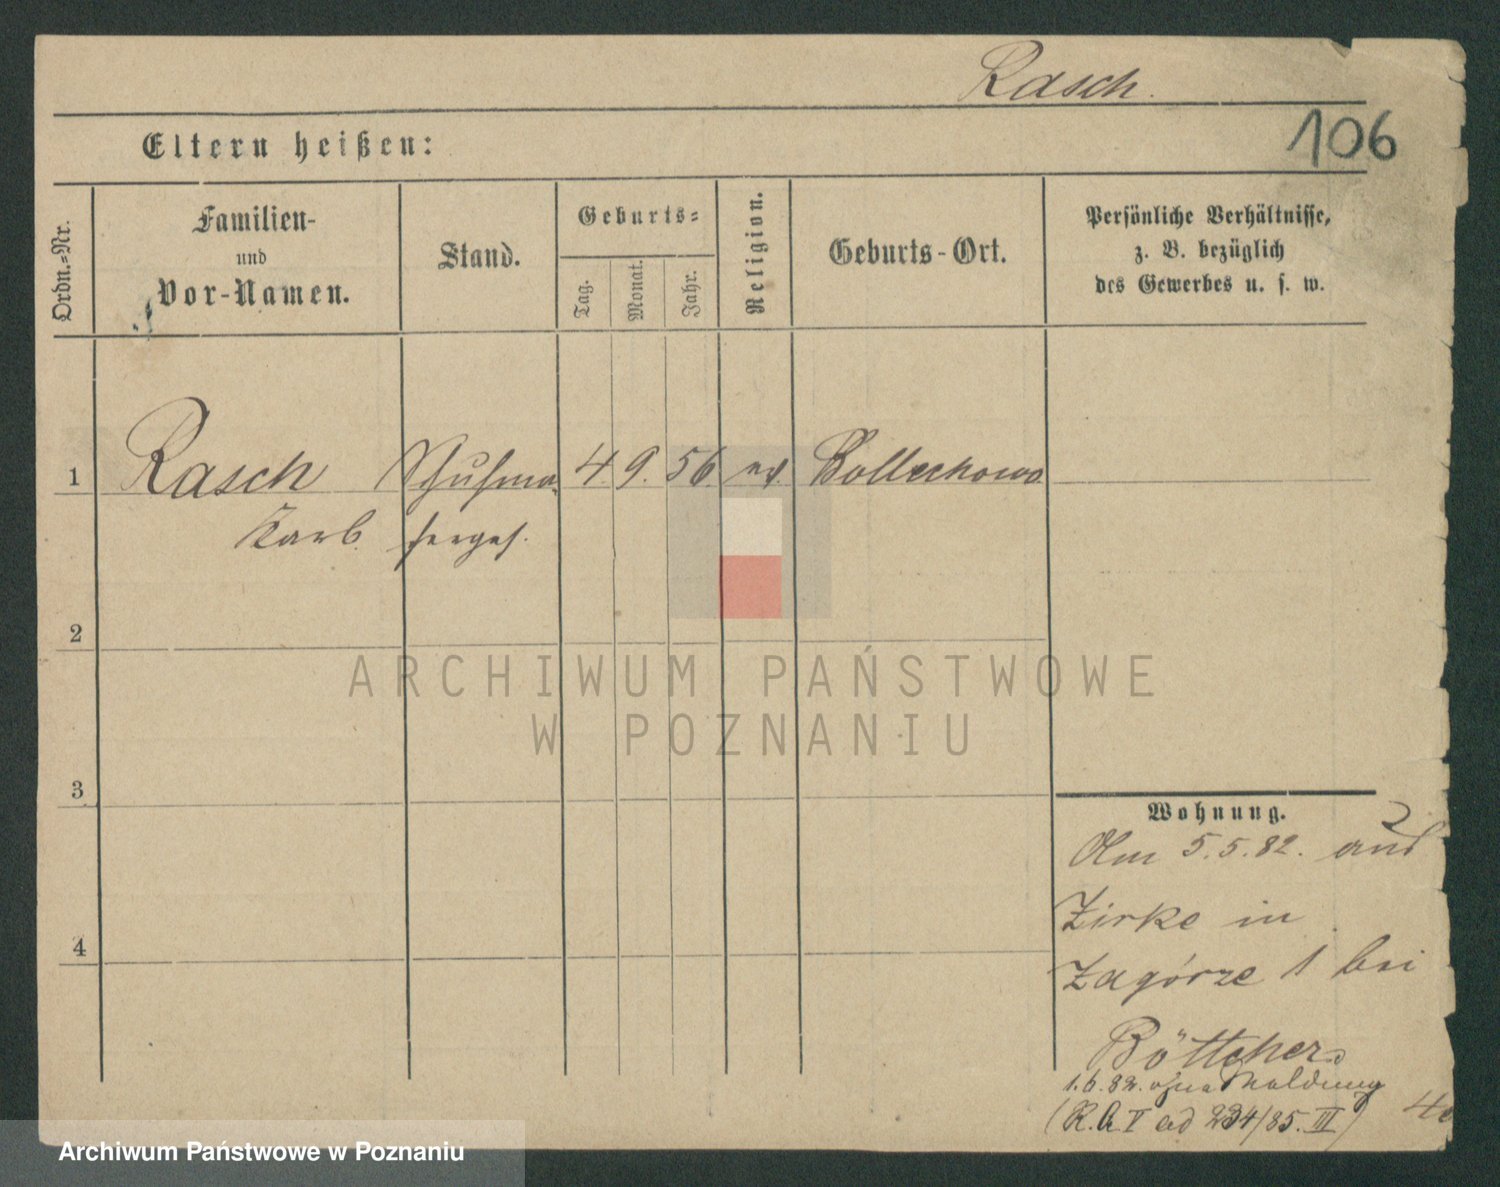 Rasch.
106
Eltern heißen:
Ordn.-Nr.
Familien-
und
Vor-Namen.
Stand.
Geburts-
Tag.
Monat.
Jahr.
Religion.
Geburts-Ort.
Persönliche Verhältnisse,
z. B. bezüglich
des Gewerbes u. s. w.
1 Rasch Schuhma- 4. 9. 56. ev. Bollechowo
Karl. chergs.
2
3
4
ARCHIWUM PAŃSTWOWE
W POZNANIU
Wohnung.
Am 5.5.82. aus
Zirke in
Zagórze 1 bei
Böttcher
1.6.82. ohne Meldung
(R. A. V ad 234/85. III)
Archiwum Państwowe w Poznaniu